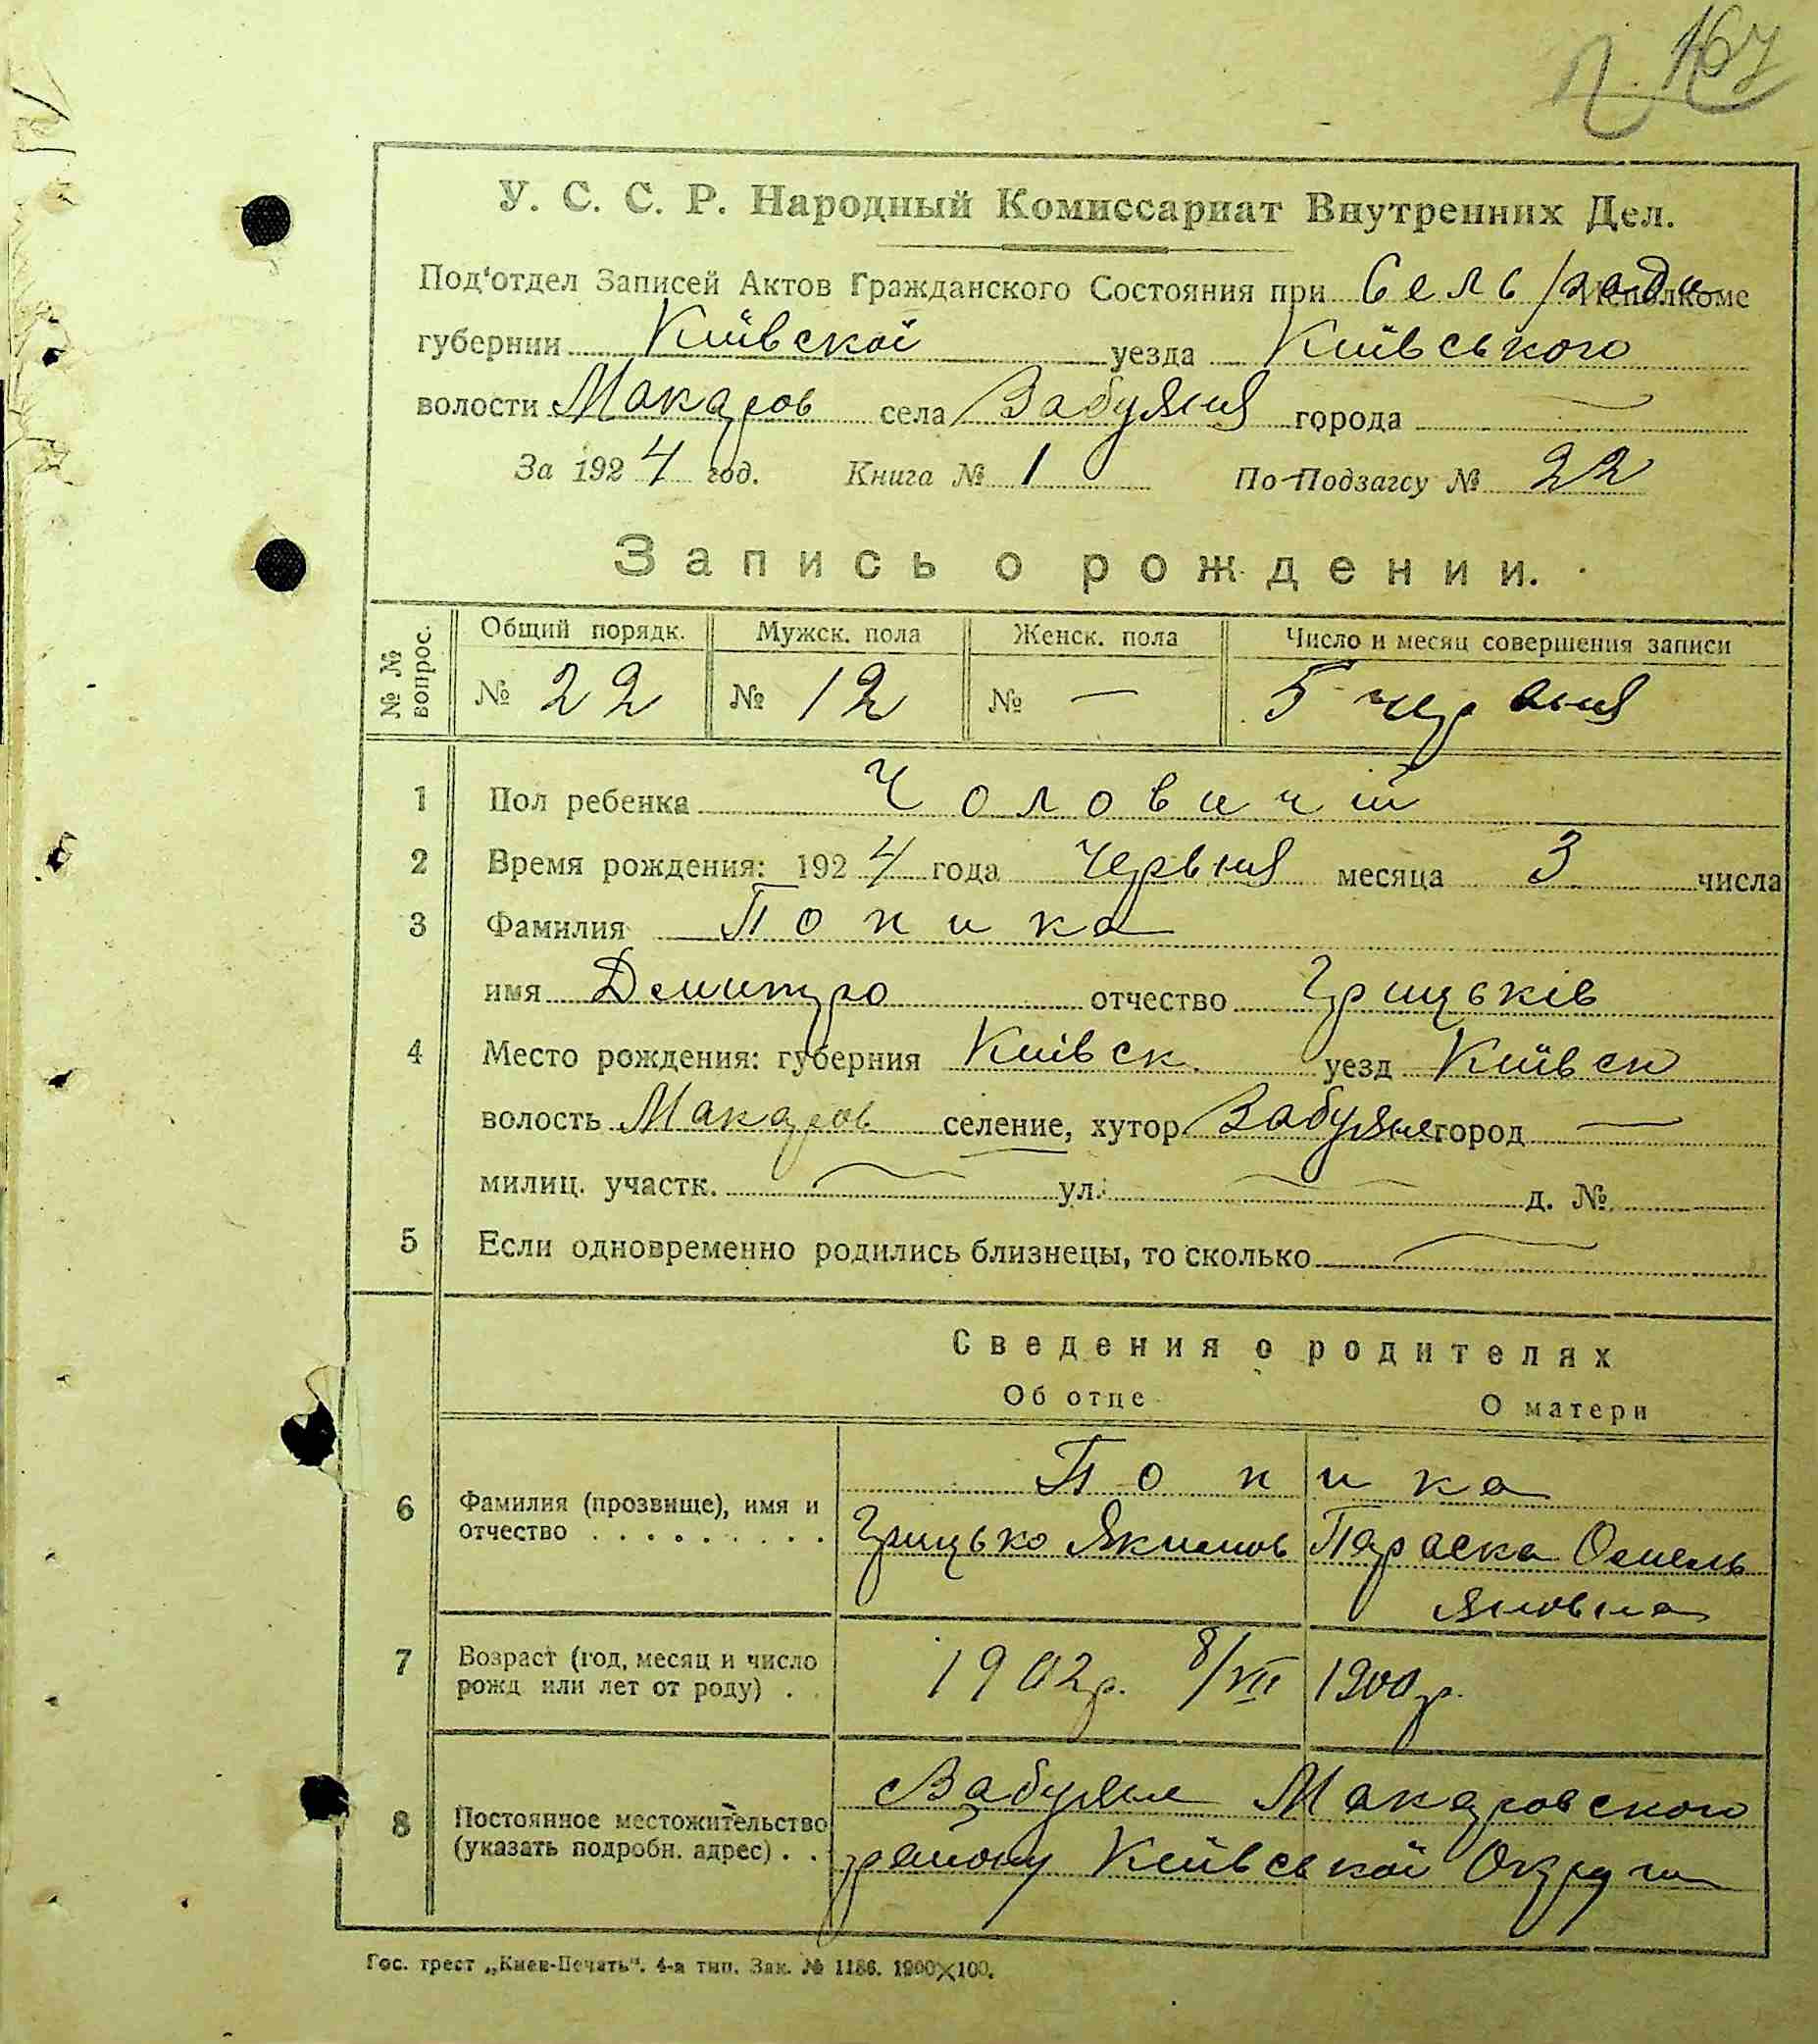 п. 167
У. С. С. Р. Народный Комиссариат Внутренних Дел.
Под'отдел Записей Актов Гражданского Состояния при Сель/ради Исполкоме
губернии Київскої уезда Київського
волости Макаров села Забуяння города —
За 1924 год. Книга № 1 По-Подзагсу № 22
Запись о рождении.
№ № вопрос. Общий порядк. Мужск. пола Женск. пола Число и месяц совершения записи
№ 22 № 12 № — 5 червня
1 Пол ребенка Чоловичий
2 Время рождения: 1924 года Червня месяца 3 числа
3 Фамилия Попика
имя Демитро отчество Грицьків
4 Место рождения: губерния Київск. уезд Київск
волость Макаров селение, хутор Забуяне город —
милиц. участк. — ул. — д. №
5 Если одновременно родились близнецы, то сколько —
Сведения о родителях
Об отце О матери
6 Фамилия (прозвище), имя и отчество Попика
Грицько Якимов Параска Омель
яновна
7 Возраст (год, месяц и число рожд или лет от роду) 1902р. 8/VII 1900р.
8 Постоянное местожительство (указать подробн. адрес) с Забуяне Макаровского
району Київської Округи
Гос. трест „Киев-Печать". 4-я тип. Зак. № 1186. 1900×100.